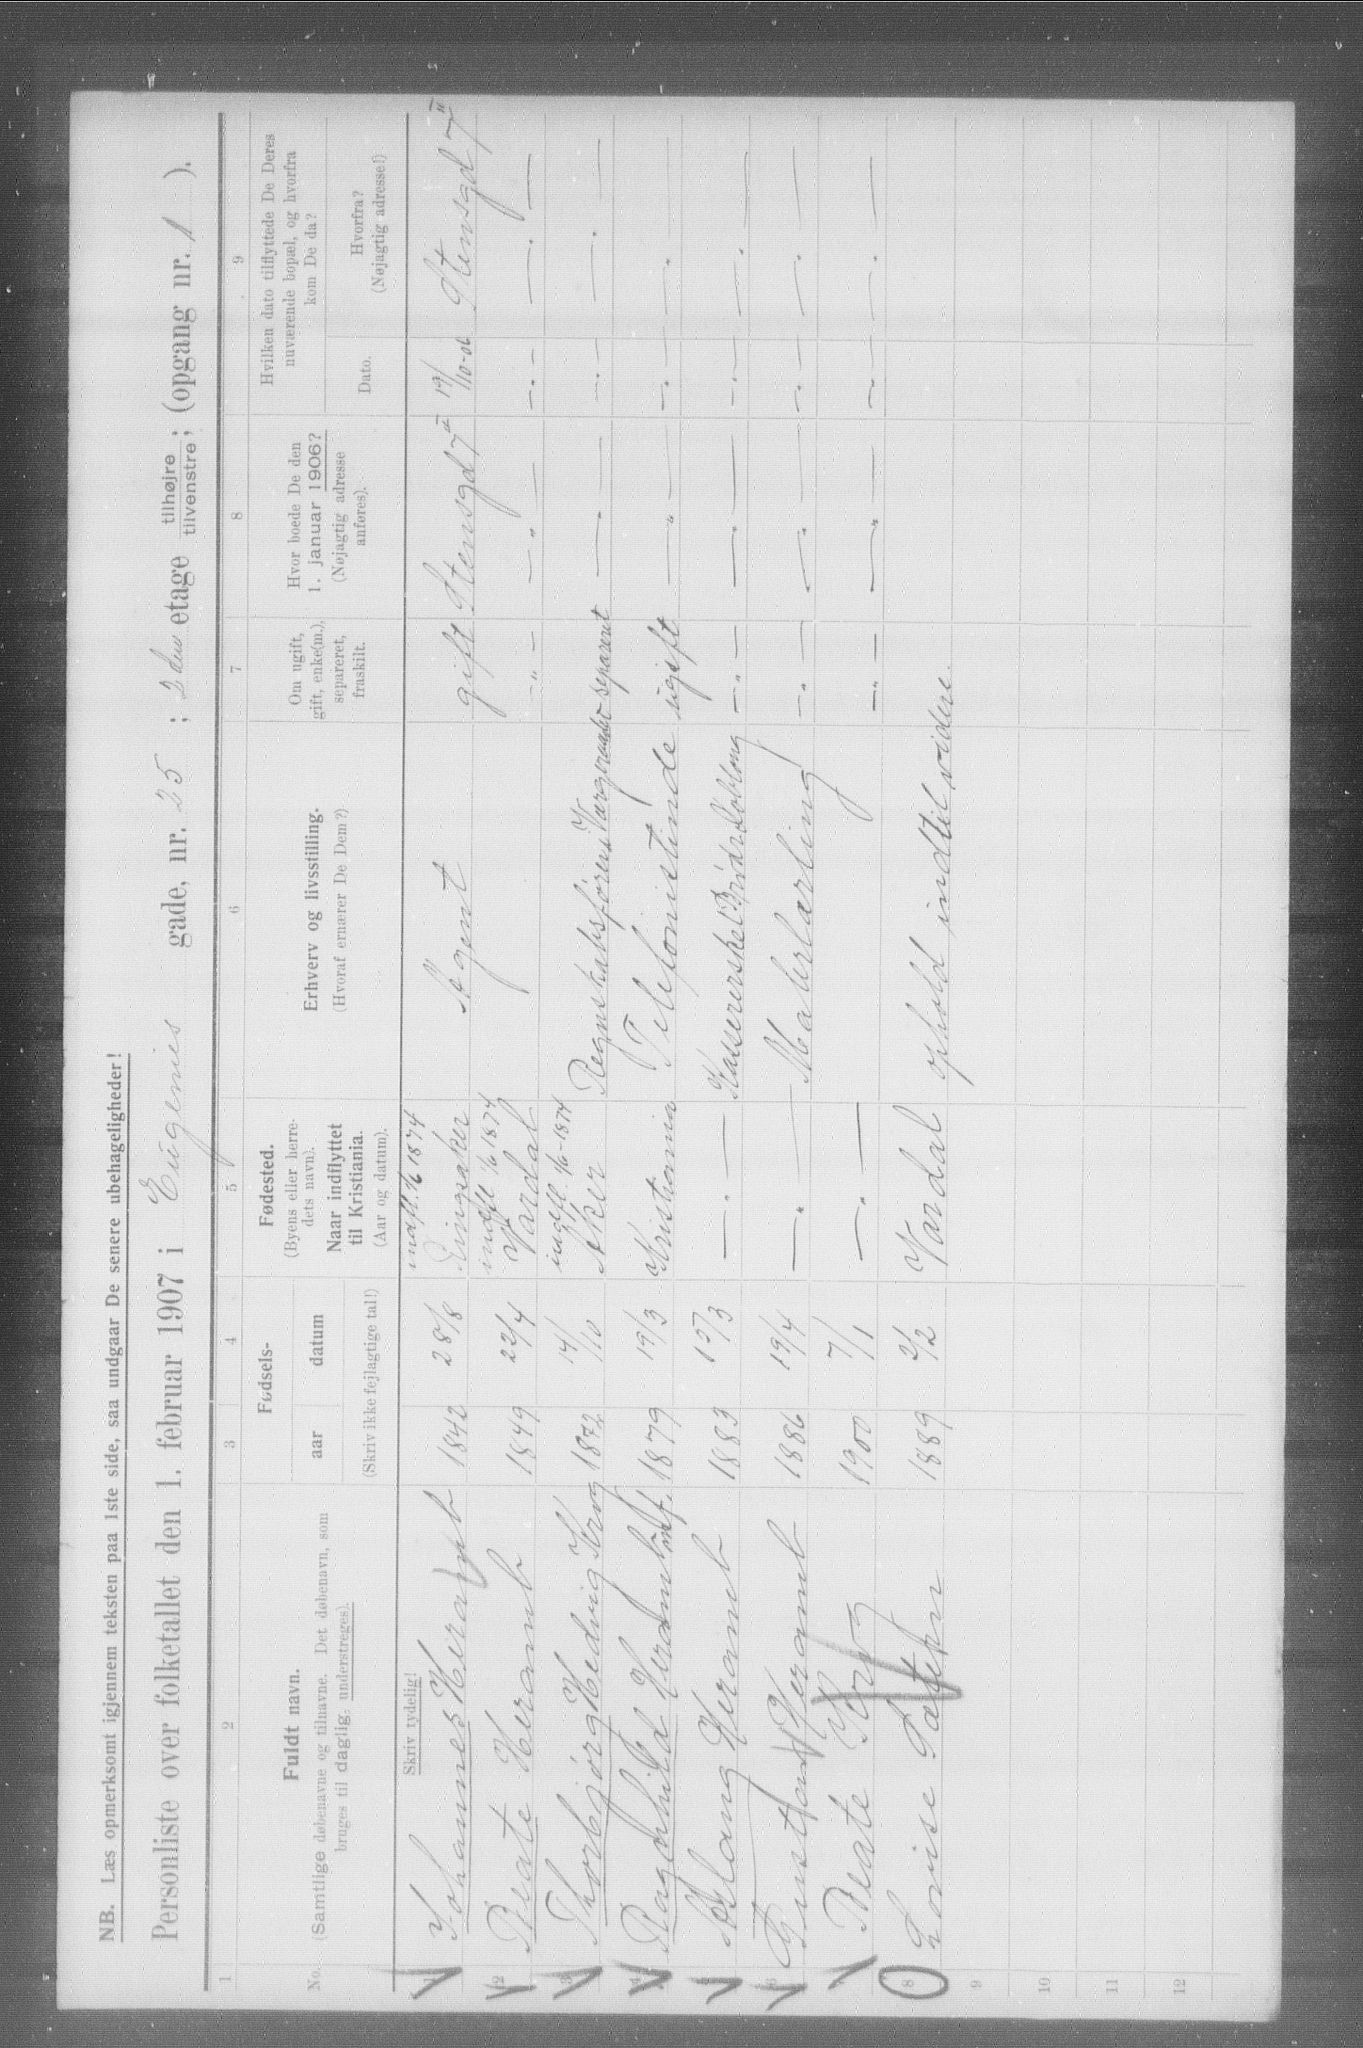 NB. Læs opmerksomt igjennem teksten paa 1ste side, saa undgaar De senere ubehageligheder!
Personliste over folketallet den 1. februar 1907 i Eugenies gade, nr. 25 ; 2den etage tilhøjre tilvenstre; (opgang nr. 1 ).
1 2 3 4 5 6 7 8 9
No. Fuldt navn. (Samtlige døbenavne og tilnavne. Det døbenavn, som bruges til daglig, understreges).
Fødsels- aar datum (Skriv ikke fejlagtige tal!)
Fødested. (Byens eller herredets navn). Naar indflyttet til Kristiania. (Aar og datum).
Erhverv og livsstilling. (Hvoraf ernærer De Dem?)
Om ugift, gift, enke(m.), separeret, fraskilt.
Hvor boede De den 1. januar 1906? (Nøjagtig adresse anføres).
Hvilken dato tilflyttede De Deres nuværende bopæl, og hvorfra kom De da?
Dato. Hvorfra? (Nøjagtig adresse!)
Skriv tydelig!
1 Johannes Heramb 1842 28/8 indfl. 1/6 1874 Ringsaker Agent gift Stensgd 7 19/10-06 Stensgd 7 II
2 Beate Heramb 1849 22/4 indfl. 1/6 1874 Vardal — " — — " — — . — — . —
3 Thorbjørg Hedvig Krog 1872 14/10 indfl. 1/6-1874 Aker Regnskabsfører separeret — " — — . — — . —
4 Ragnhild Heramb 1879 19/3 Kristiania Telefonistinde ugift — " — — . — — . —
5 Aslaug Heramb 1883 15/3 — " — Kassererske — " — — " — — . — — . —
6 Heramb 1886 19/4 — " — Malerlærling — " — — " — — . — — . —
7 Beate Krog 1900 7/1 — " — — " — — " — — . — — . —
8 Lovise 1889 2/2 Vardal ophold indtil videre.
9
10
11
12